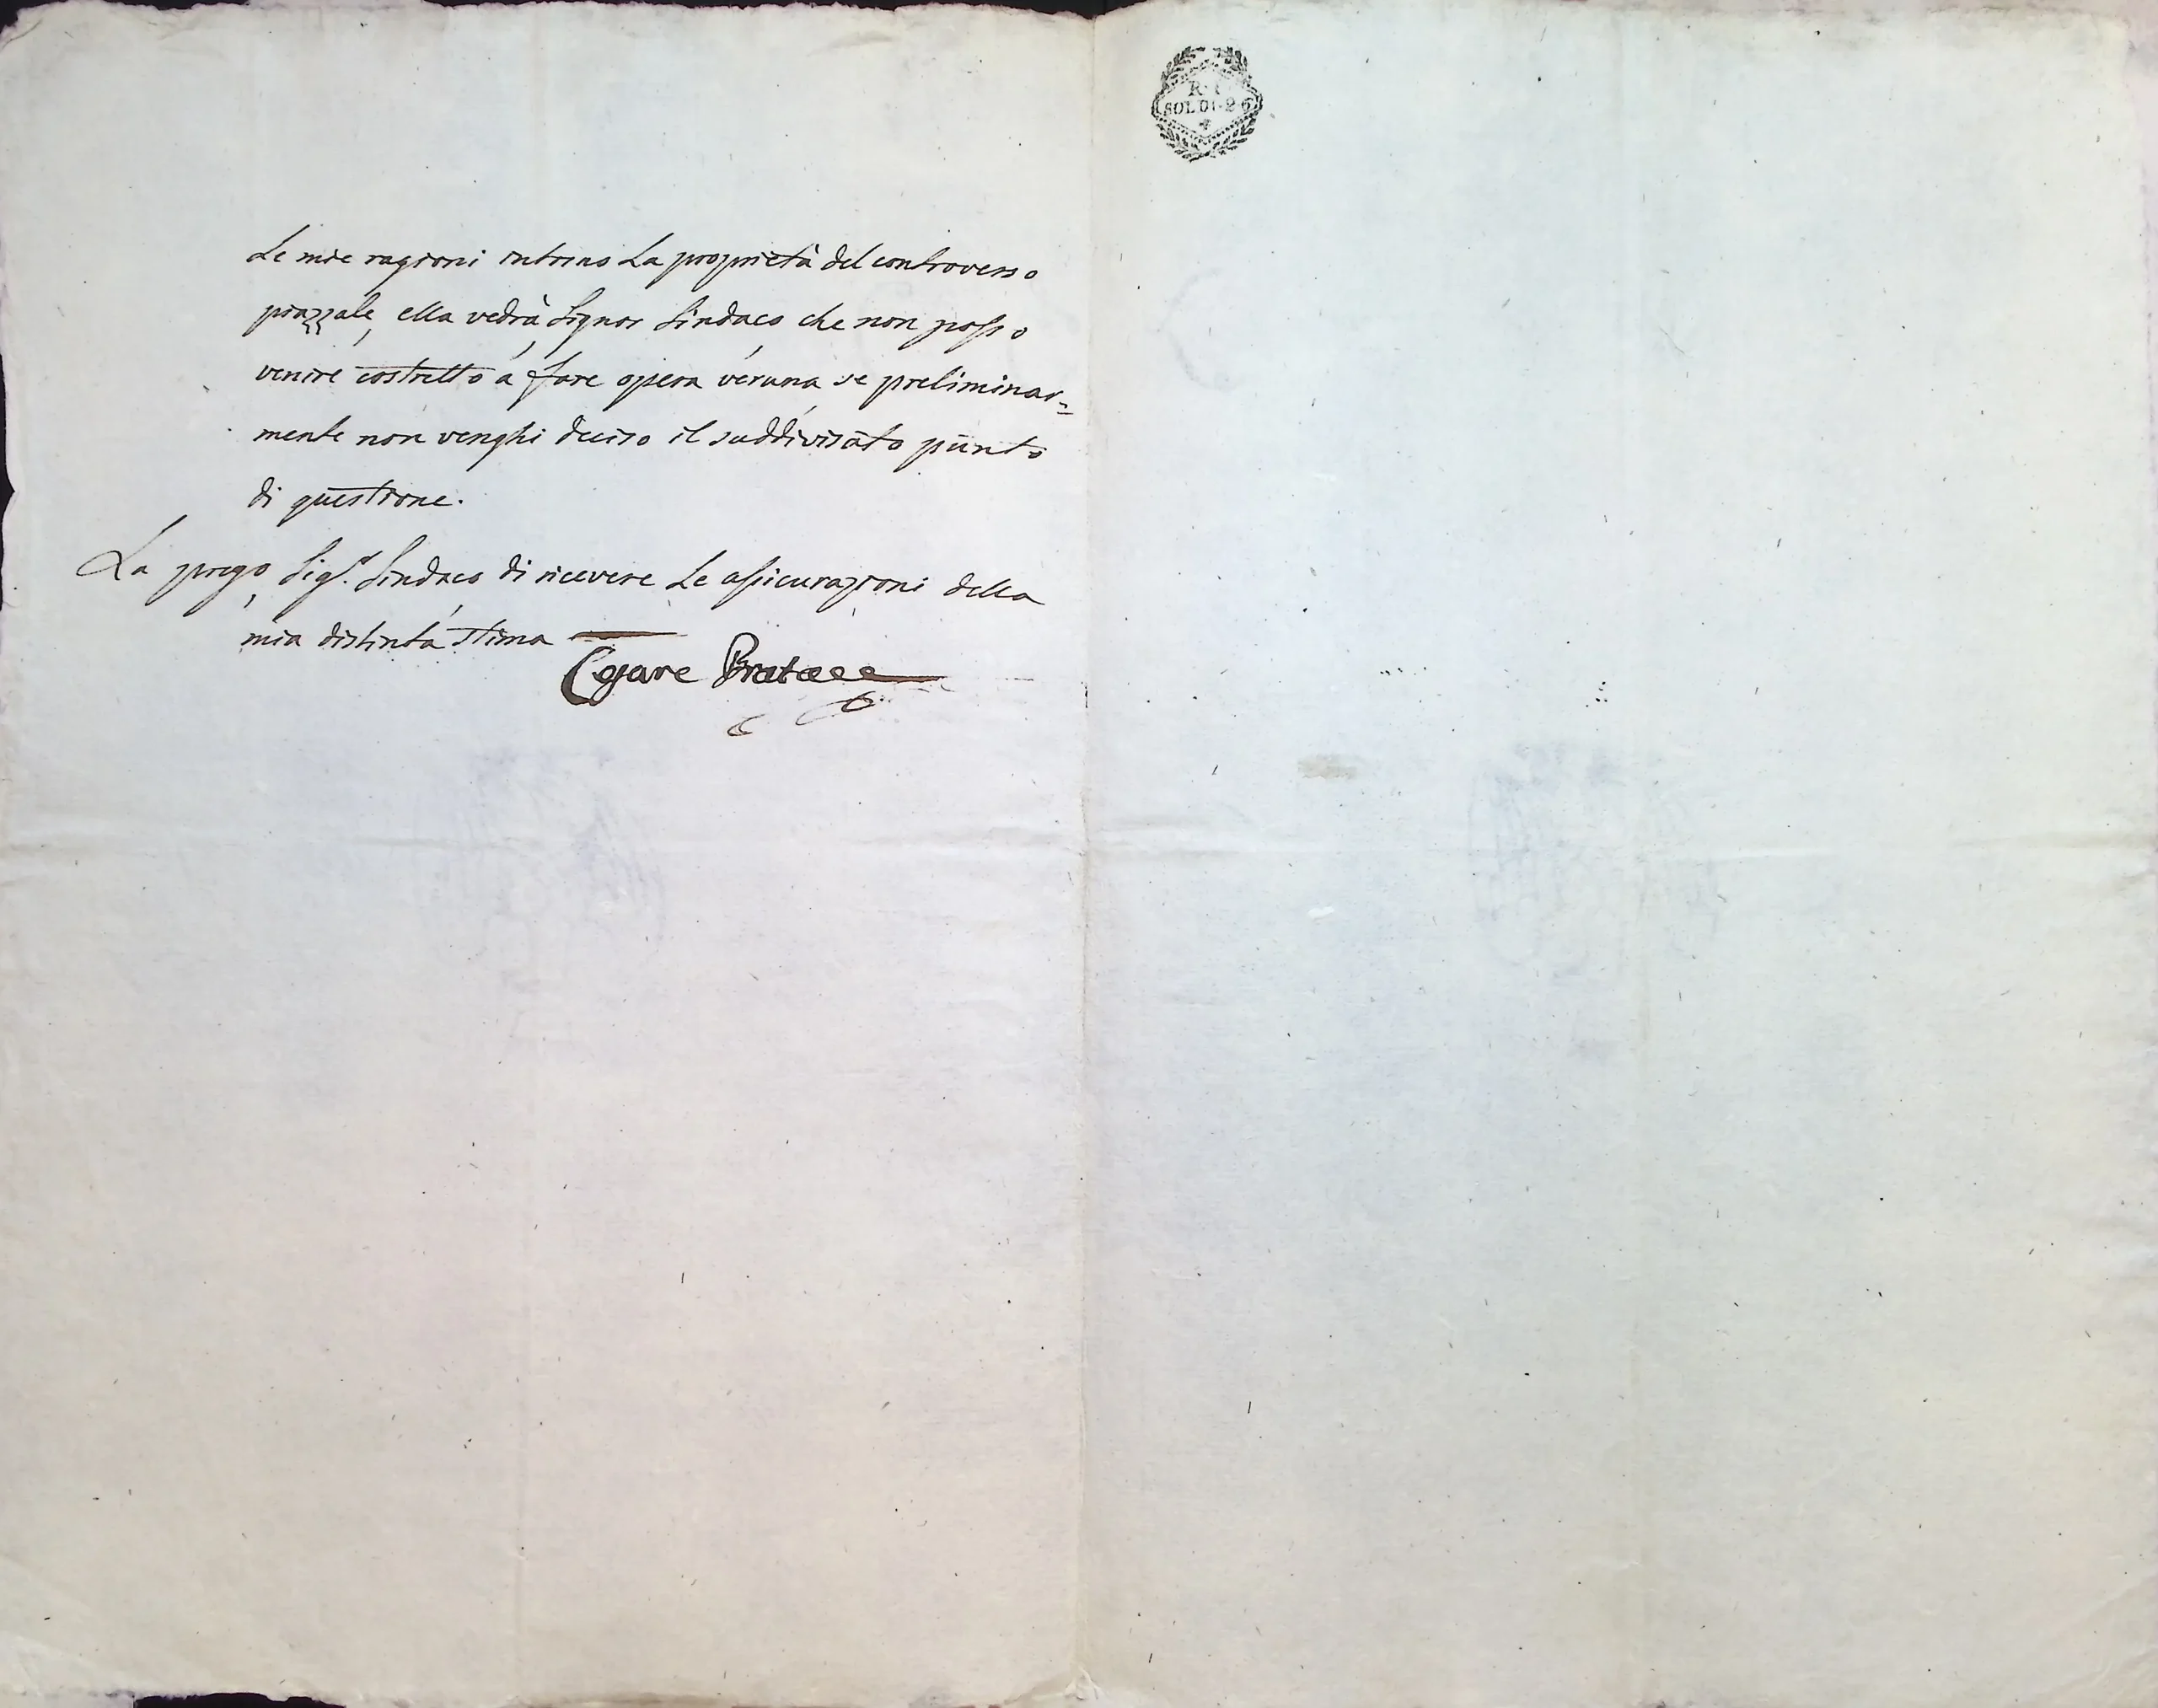 Le mie ragioni intorno La proprietà del controverso
piazzale, ella vedrà, Signor Sindaco, che non posso
venire costretto a fare opera veruna, se preliminar=
mente non venghi deciso il suddivisato punto
di questione.
La prego, Sigr. Sindaco, di ricevere Le assicurazioni della
mia distinta stima
Cesare
SOLDI-26